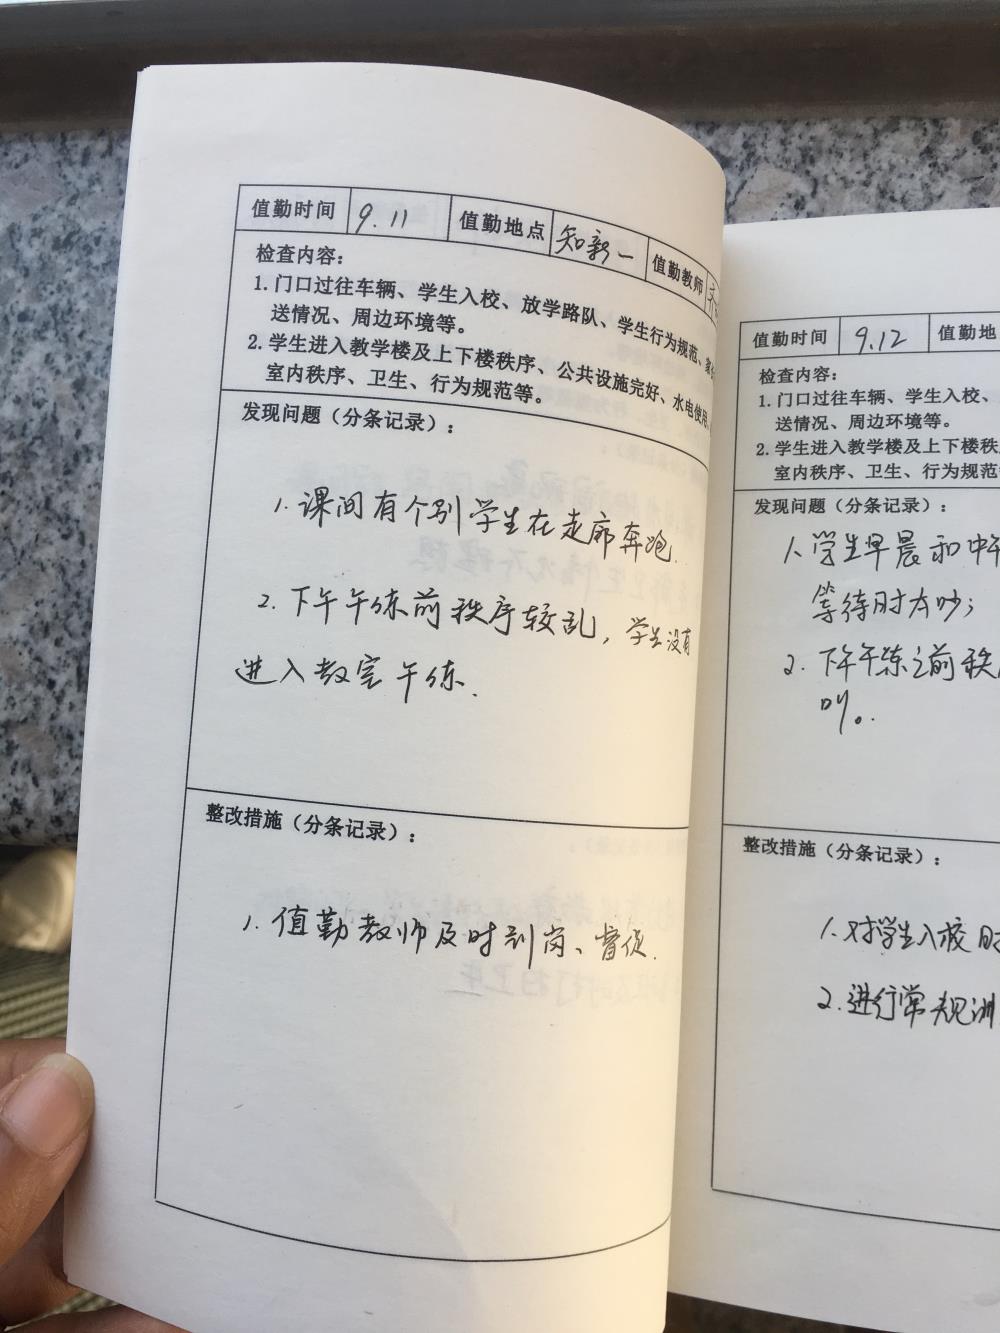 值勤时间 9.11 值勤地点 知新一 值勤教师
检查内容：
1. 门口过往车辆、学生入校、放学路队、学生行为规范、
送情况、周边环境等。
2. 学生进入教学楼及上下楼秩序、公共设施完好、水电使用、
室内秩序、卫生、行为规范等。
发现问题（分条记录）：
1. 课间有个别学生在走廊奔跑.
2. 下午午练前秩序较乱，学生没有
进入教室午练.
整改措施（分条记录）：
1. 值勤教师及时到岗、督促.
值勤时间 9.12 值勤地
检查内容：
1. 门口过往车辆、学生入校、
送情况、周边环境等。
2. 学生进入教学楼及上下楼秩
室内秩序、卫生、行为规范
发现问题（分条记录）：
1. 学生早晨和中午
等待时太吵；
2. 下午午练之前秩序
叫。
整改措施（分条记录）：
1. 对学生入校时
2. 进行常规训